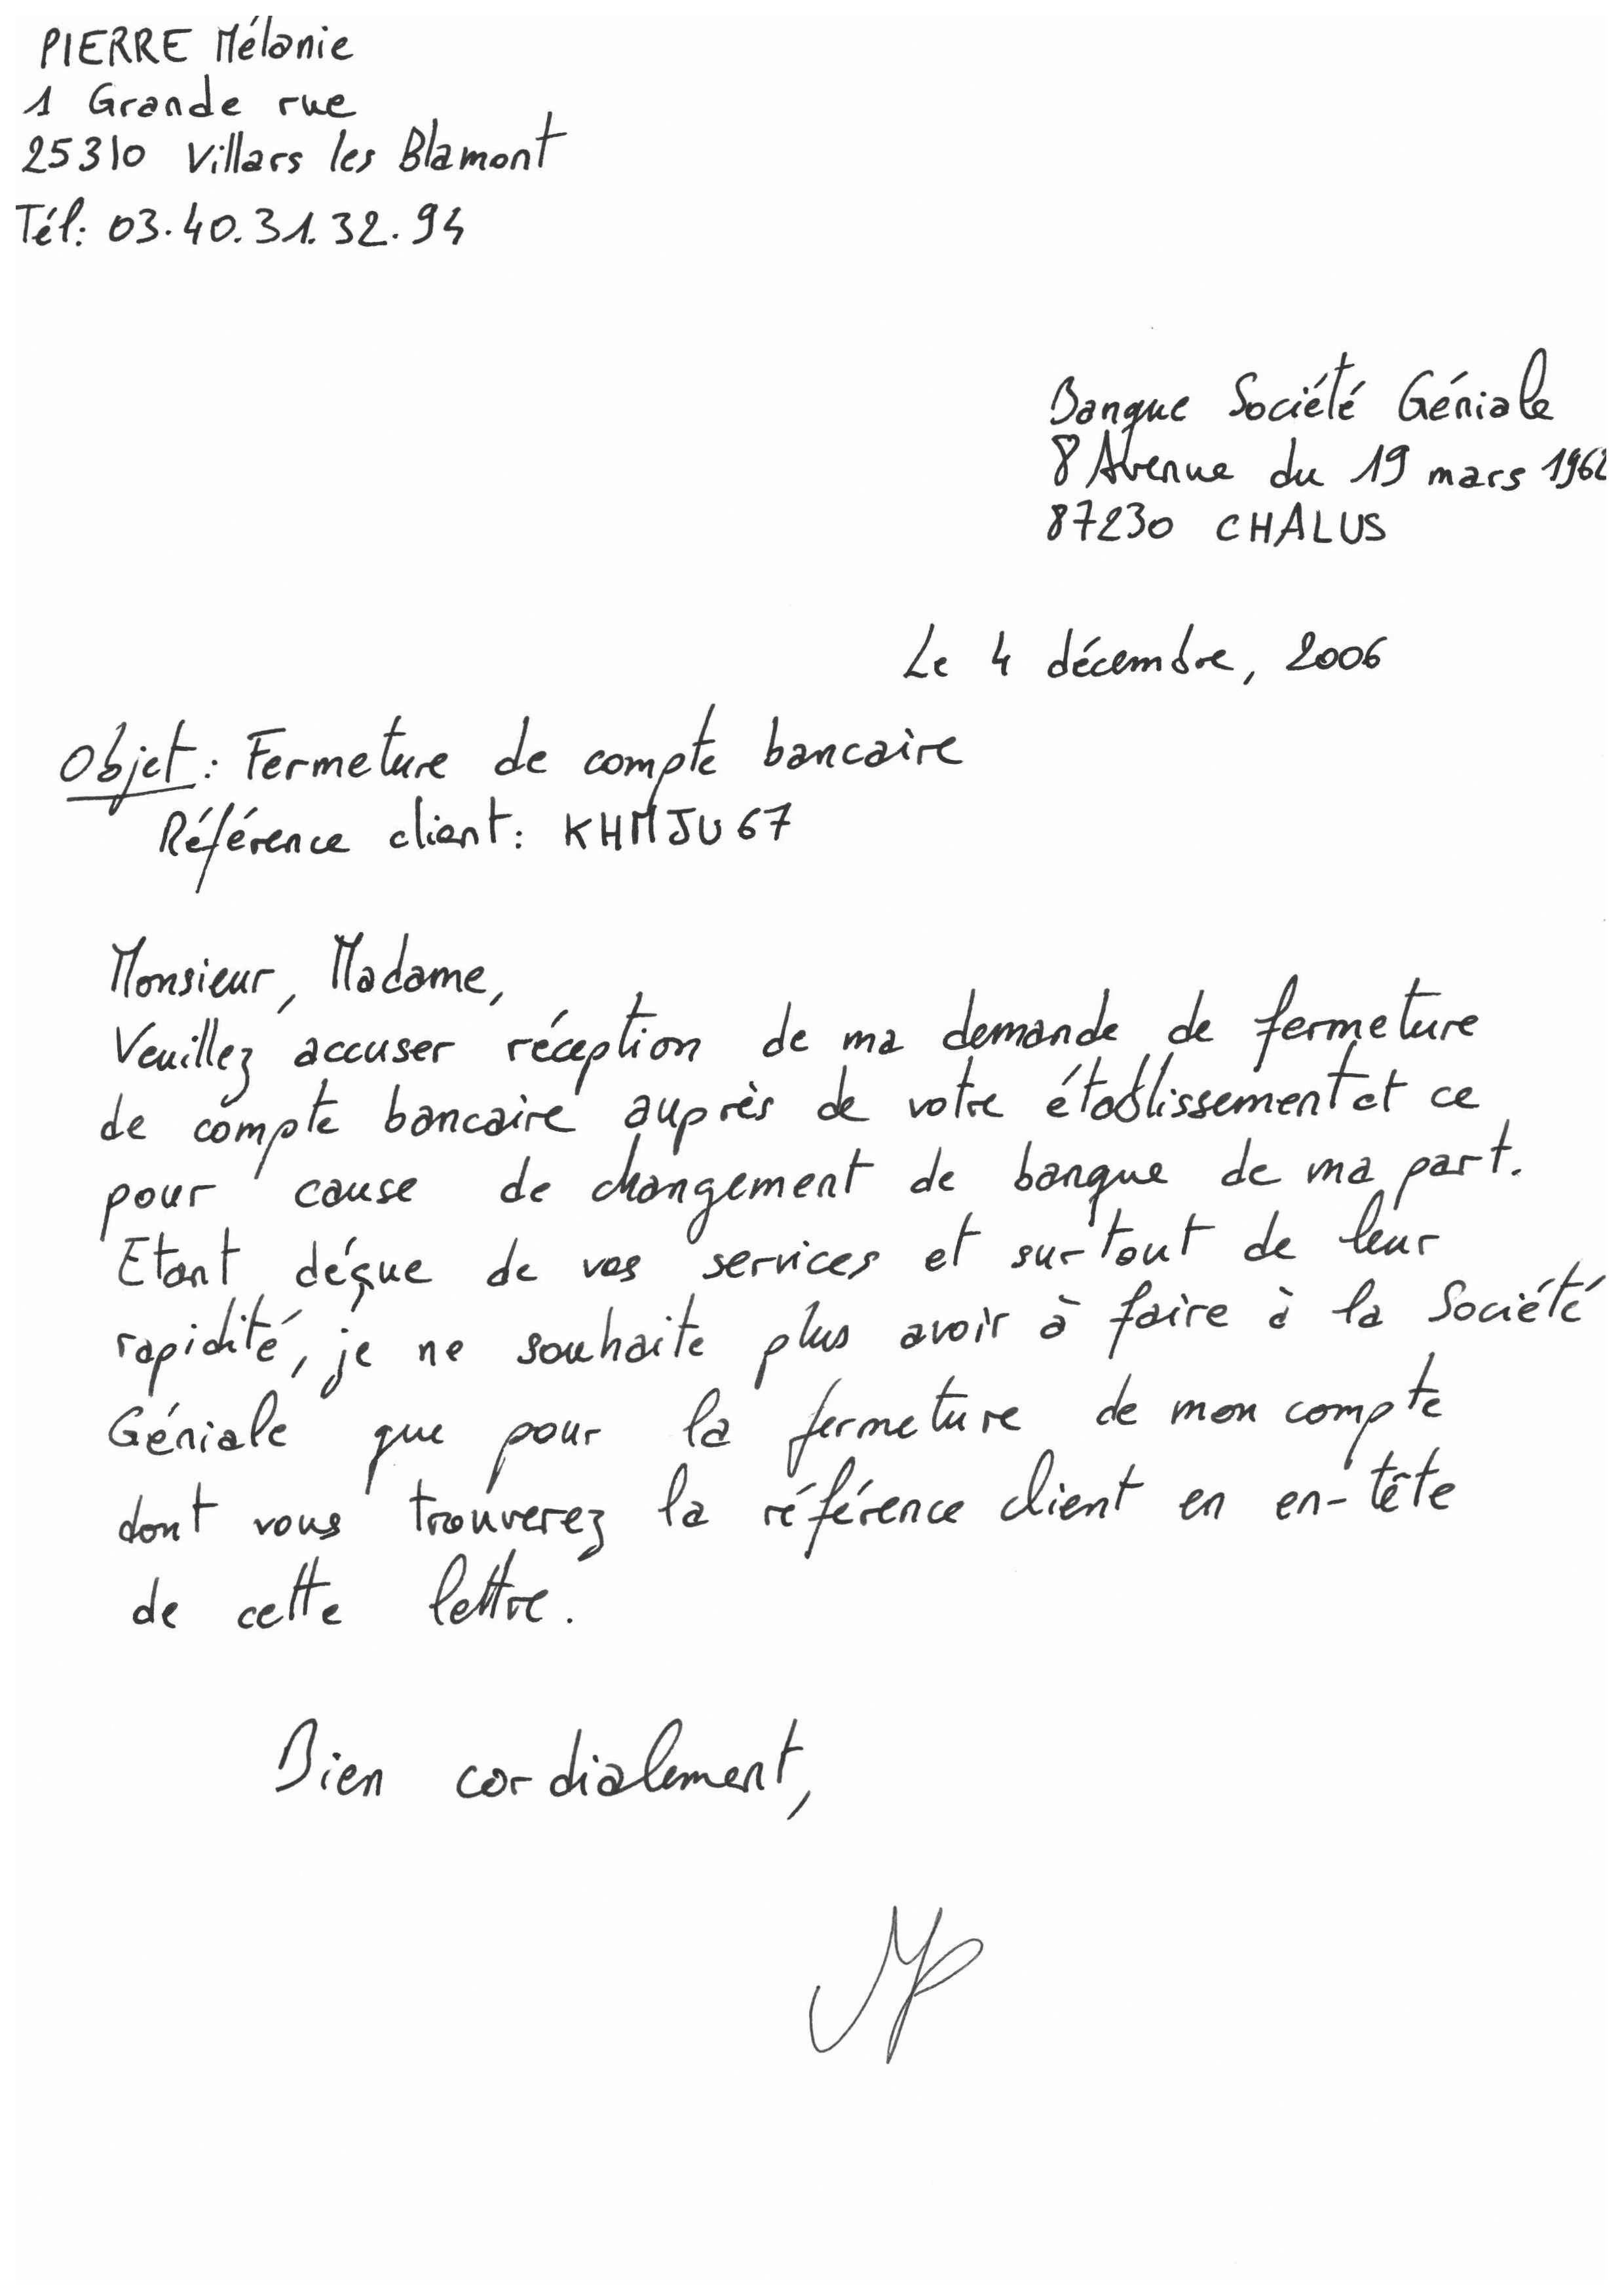 PIERRE Mélanie
1 Grande rue
25310 Villars les Blamont
Tél: 03.40.31.32.94
Banque Société Géniale
8 Avenue du 19 mars 1962
87230 CHALUS
Le 4 décembre, 2006
Objet: Fermeture de compte bancaire
Référence client: KHMJU67
Monsieur, Madame,
Veuillez accuser réception de ma demande de fermeture
de compte bancaire auprès de votre établissement et ce
pour cause de changement de banque de ma part.
Etant déçue de vos services et surtout de leur
rapidité, je ne souhaite plus avoir à faire à la Société
Géniale que pour la fermeture de mon compte
dont vous trouverez la référence client en en-tête
de cette lettre.
Bien cordialement,
MP